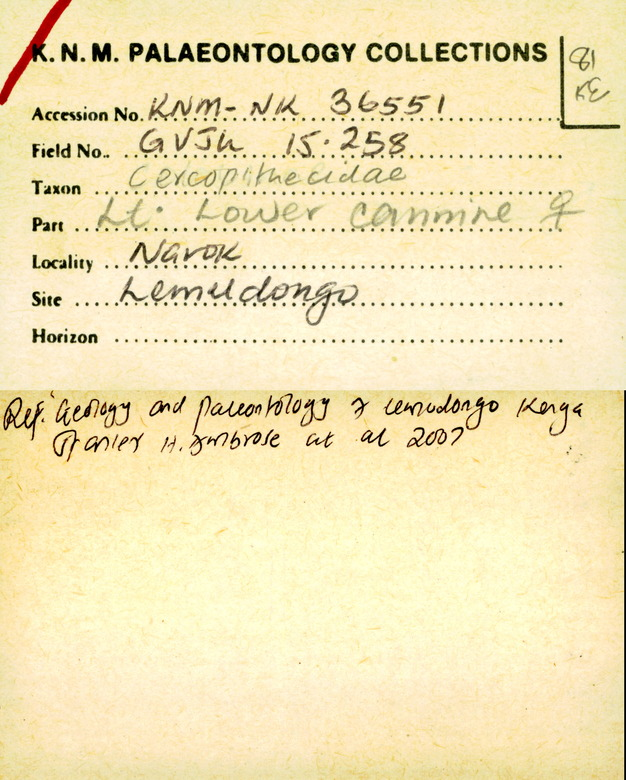 K.N.M. PALAEONTOLOGY COLLECTIONS
81
KE
Accession No. KNM-NK 36551
Field No.. GVJh 15.258
Taxon Cercopithecidae
Part Lt. Lower cannine ♀
Locality Narok
Site Lemudongo
Horizon
Ref. Geology and paleontology of Lemudongo Kenya
Stanley H. Ambrose at al 2007